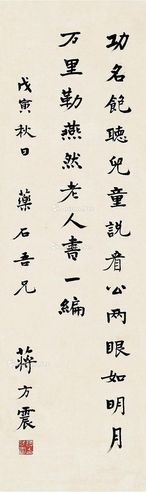 功名飽聽兒童説看公兩眼如明月
万里勒燕然老人書一編
戊寅秋日 藥石吾兄
蔣方震